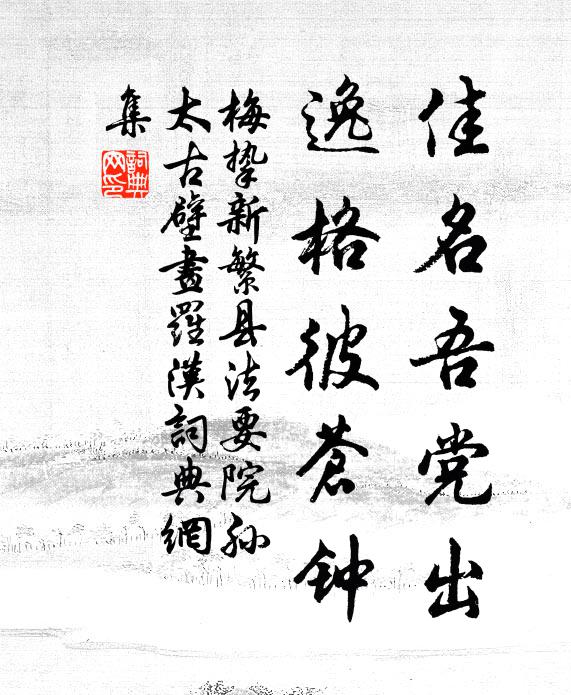 佳名吾党出
逸格彼苍钟
梅挚新繁县法要院孙
太古壁畫羅漢詞典網
集
詞典网印